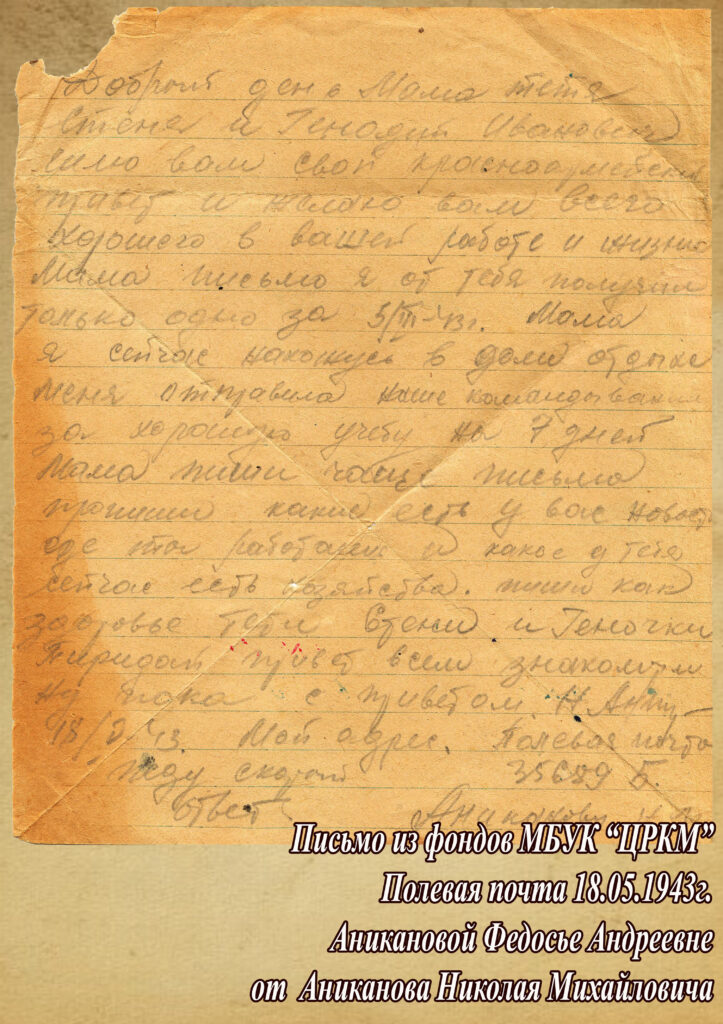 Добрый день Мама тетя
Стеня и Генадий Иванович
шлю вам свой красноармейский
привет и желаю вам всего
хорошего в вашей работе и жизни
Мама письмо я от тебя получил
только одно за 5/III-43г. Мама
я сейчас нахожусь в доми отдыха
меня отправила наше командывания
за хорошую учебу на 7 дней
Мама пиши чаще письма
пропиши какие есть у вас новости
где ты работаеш и какое у тебя
сейчас есть хозяйства. пиши как
здоровье тети Стени и Геночки
Пиридай привет всем знакомым
Ну пока с приветом. Н. Ани-
18/ 43 Мой адрес. Полевая почта
жду скорый 35689 Б.
ответ Аниканову
Письмо из фондов МБУК “ЦРКМ”
Полевая почта 18.05.1943г.
Аникановой Федосье Андреевне
от Аниканова Николая Михайловича